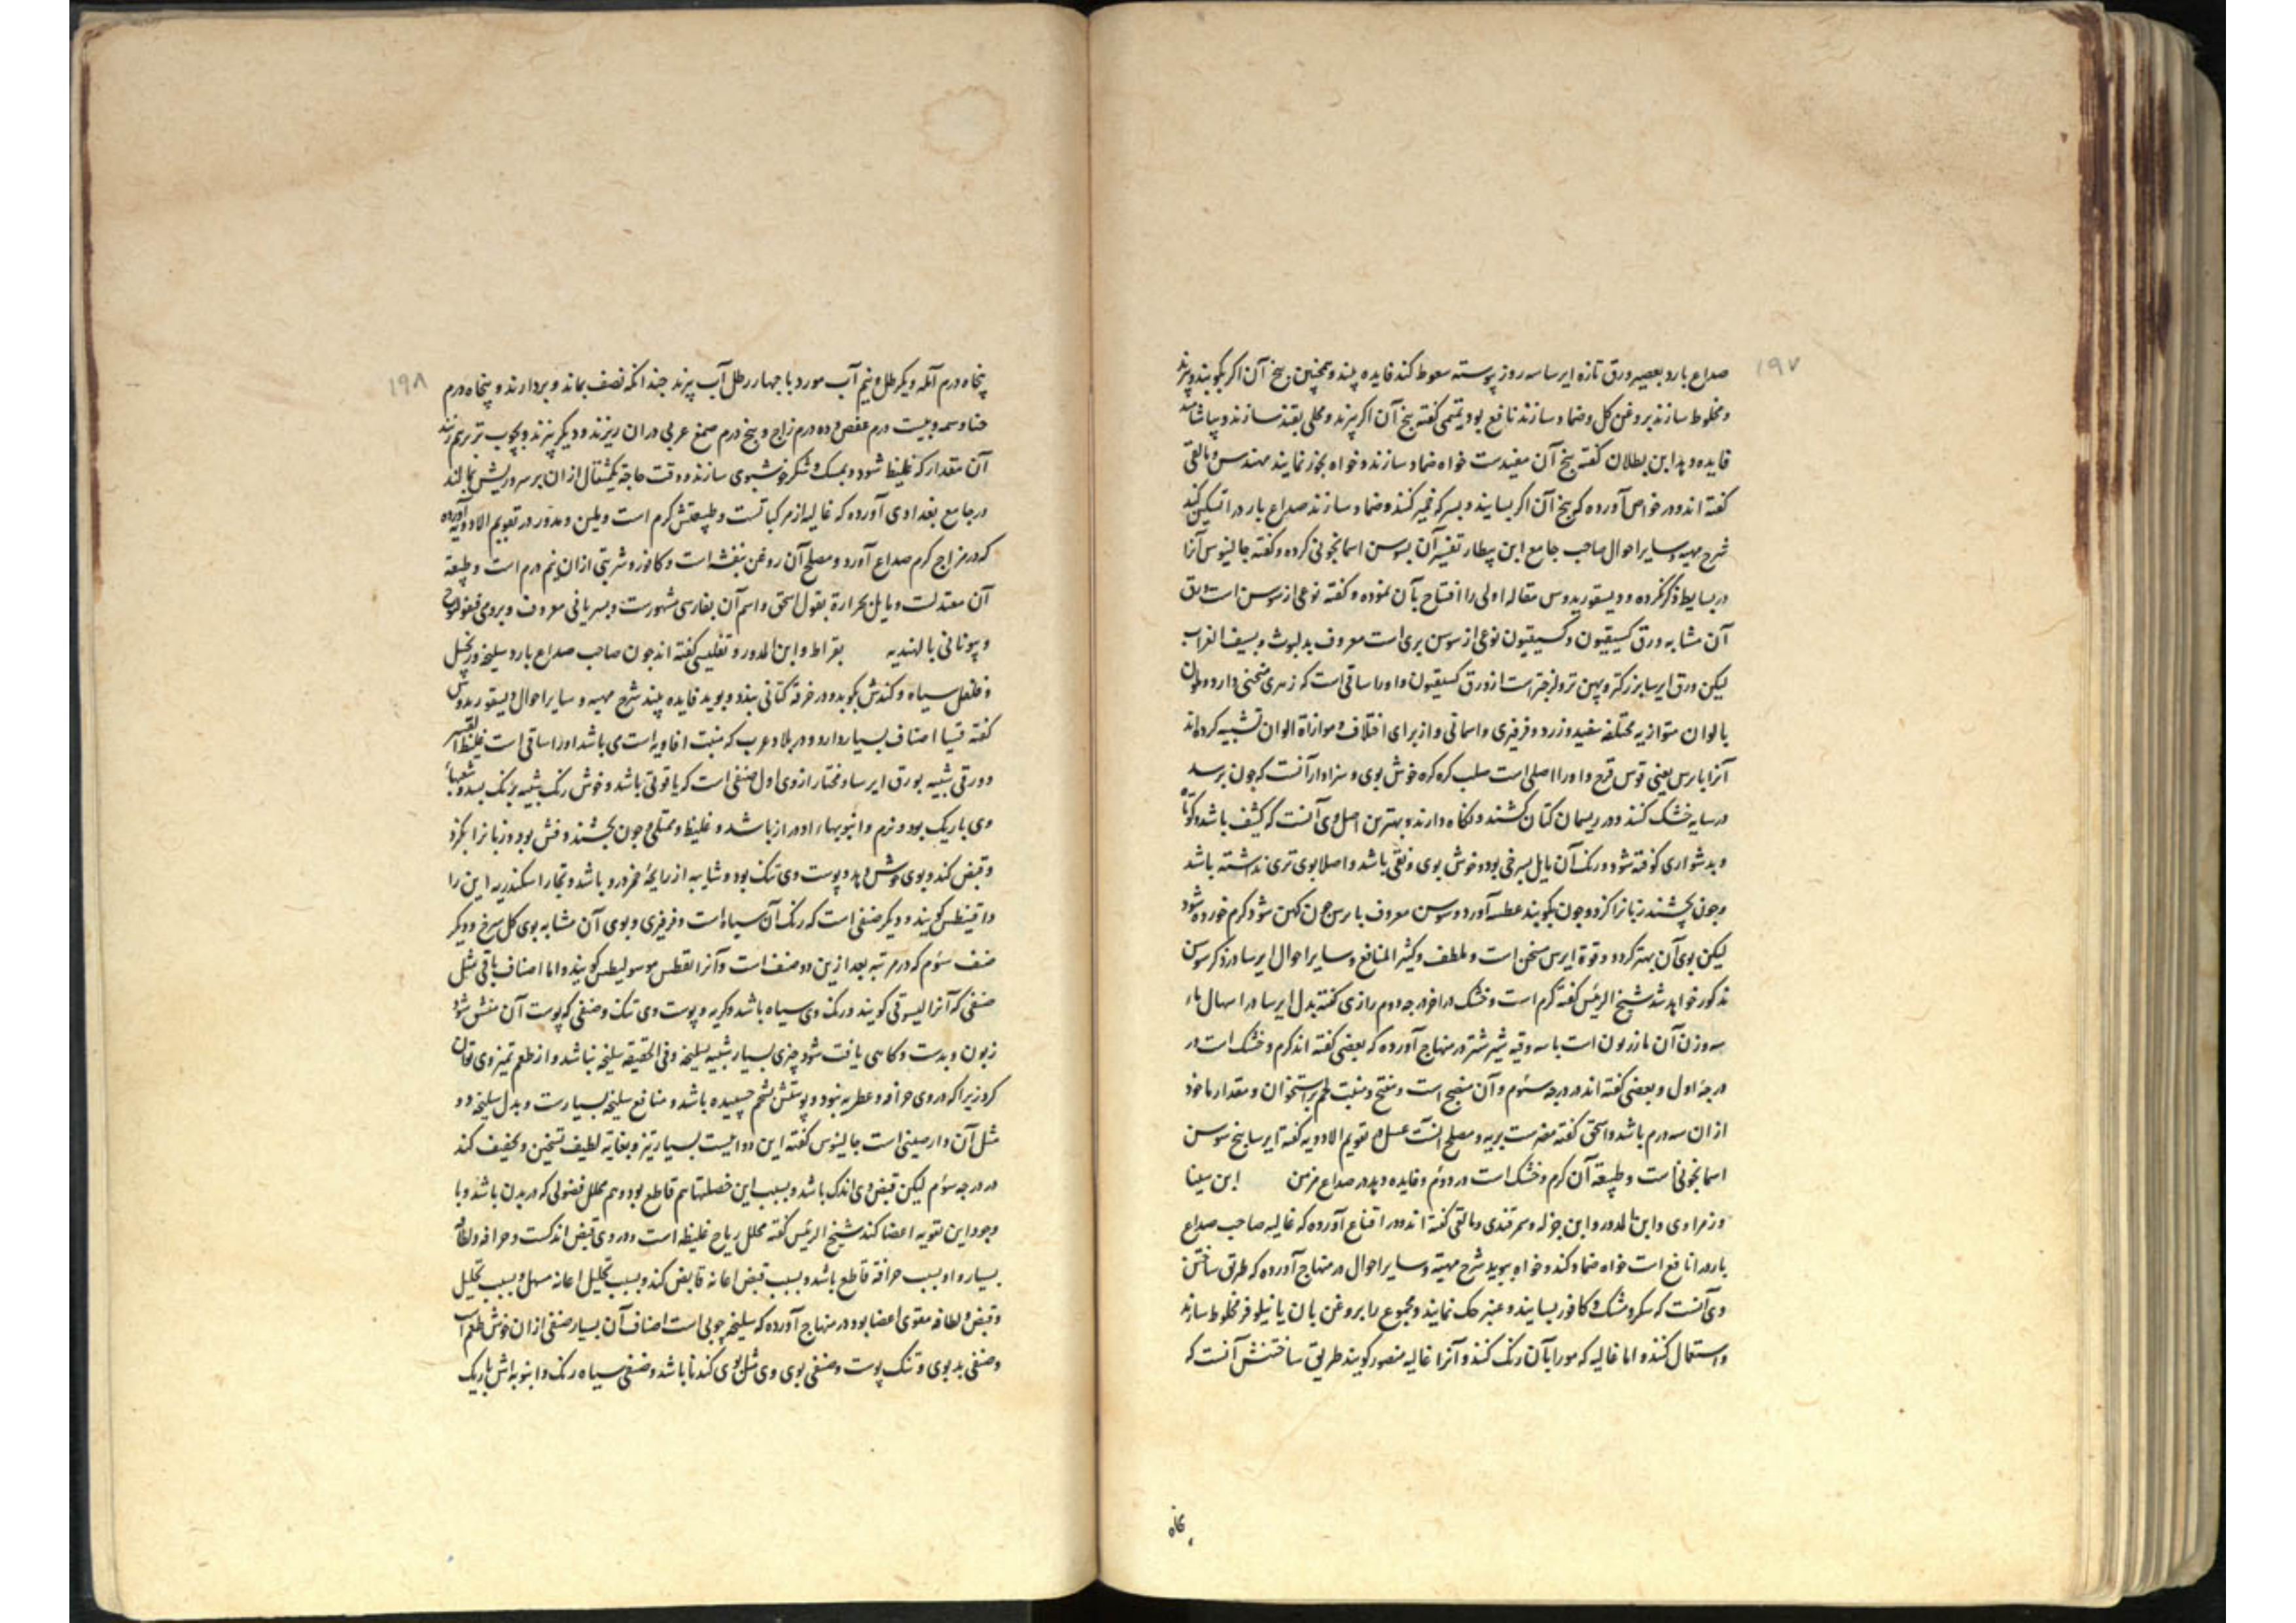 ۱۹۷
صداع بارد بعصیر ورق تازه ایرسا سه روز پیوسته سعوط کند فایده بیند و همچنین بیخ آن اکر بکوبند و بپزند
و مخلوط سازند بروغن کل و ضماد سازند نافع بود تمیمی کفته بیخ آن اکر بپزند و محلی بقند سازند و بیاشامند
فایده دهد ابن بطلان کفته بیخ آن مفیدست خواه ضماد سازند و خواه بخور نمایند مهندس و مالقی
کفته اند و در خواص آورده که بیخ آن اکر بسایند و بسرکه خمیر کنند و ضماد سازند صداع بارد را تسکین کند
شرح مهیه و سایر احوال صاحب جامع ابن بیطار تفسیر آن بسوسن اسمانجونی کرده و کفته جالینوس آنرا
در بسایط ذکر نکرده و دیسقوریدوس مقاله اولی را افتتاح بآن نموده و کفته نوعی از سوسن است ورق
آن مشابه ورق کسیفیون و کسیفیون نوعی از سوسن بری است معروف بدلبوث و بسیف الغراب
لیکن ورق ایرسا بزرکتر و پهن تر و لزجتر است از ورق کسیفیون و او را ساقی است که زهری منحنی دارد و ملون
بالوان متوازیه مختلفه سفید و زرد و فرفیری و اسمانی و از برای اختلاف و موازاة الوان تشبیه کرده اند
آنرا بایرس یعنی قوس قزح و او را اصلی است صلب کره کره خوش بوی و سزاوار آنست که چون برسد
در سایه خشک کنند و در ریسمان کتان کشند و نکاه دارند و بهترین اصل وی آنست که کثیف باشد و کوتاه
و بدشواری کوفته شود و رنک آن مایل بسرخی بود و خوش بوی و نقی باشد و اصلا بوی تری نداشته باشد
و چون بچشند زبانرا کزد و چون بکوبند عطسه آورد و سوسن معروف بایرس چون کهن شود کرم خورده شود
لیکن بوی آن بهتر کردد و قوة ایرس مسخن است و ملطف و کثیر المنافع و سایر احوال ایرسا در ذکر سوسن
مذکور خواهد شد شیخ الرئیس کفته کرم است و خشک در اخر درجه دوم رازی کفته بدل ایرسا در اسهال ماء
سه وزن آن مازریون است با سه وقیه شیر شتر در منهاج آورده که بعضی کفته اند کرم و خشک است در
درجه اول و بعضی کفته اند در درجه سئوم و آن منضج است و مفتح و منبت لحم بر استخوان و مقدار ماخوذ
از ان سه درم باشد و اسحق کفته مضرست بریه و مصلح آنست عسل و تقویم الادویه کفته ایرسا بیخ سوسن
اسمانجونی است و طبیعة آن کرم و خشک است در دوئم و فایده دهد در صداع مزمن ابن سینا
و زهراوی و ابن المدور و ابن جزله و سمرقندی و مالقی کفته اند و در اقناع آورده که غالیه صاحب صداع
بارد را نافع است خواه ضماد کند و خواه ببوید شرح مهیته و سایر احوال در منهاج آورده که طریق ساختن
وی آنست که سک و مشک و کافور بسایند و عنبر حک نمایند و مجموع را بروغن بان یا نیلوفر مخلوط سازند
و استعمال کنند و اما غالیه که مورا بآن رنک کنند و آنرا غالیه منصور کویند طریق ساختنش آنست که
پنجاه
۱۹۸
پنجاه درم آمله و یکرطل و نیم آب مورد با چهار رطل آب بپزند چندانکه نصف بماند و بردارند و پنجاه درم
حنا و سمه و بیست درم عفص و ده درم زاج و پنج درم صمغ عربی در ان ریزند و دیکر بپزند و بچوب تر برهم زنند
آن مقدار که غلیظ شود و بمسک و شکر خوشبوی سازند و وقت حاجة یکمثقال از ان بر سر و ریش بمالند
در جامع بغدادی آورده که غالیه از مرکباتست و طبیعتش کرم است و ملین و مدور در تقویم الادویه آورده
که در مزاج کرم صداع آورد و مصلح آن روغن بنفشه است و کافور و شربتی از ان نیم درم است و طبیعة
آن معتدلست و مایل بحرارة بقول اسحق و اسم آن بفارسی مشهورست و بسریانی معروف و برومی
و یونانی بالهندیه بقراط و ابن المدور و تفلیسی کفته اند چون صاحب صداع بارد سلیخه و زنجبیل
و فلفل سیاه و کندش بکوبد و در خرقه کتانی بندد و ببوید فایده بیند شرح مهیه و سایر احوال دیسقوریدوس
کفته قسیا اصناف بسیار دارد و در بلاد عرب که منبت افاویه است می باشد او را ساقی است غلیظ القشر
و ورقی شبیه بورق ایرسا و مختار از وی اول صنفی است که یاقوتی باشد و خوش رنک شبیه برنک بسد و شعبهاء
وی باریک بود و نرم و انبوبهاء او دراز باشد و غلیظ و ممتلی و چون بچشند خوش بود و زبانرا بکزد
و قبض کند و بوی خوش دهد و پوست وی تنک بود و شایبه از رایحه خمر درو باشد و تجار اسکندریه این را
دافنیطس کویند و دیکر صنفی است که رنک آن سیاه است و فرفیری و بوی آن مشابه بوی کل سرخ و دیکر
صنف سئوم که در مرتبه بعد از ین دو صنف است و آنرا نقطس موسولیطس کویند و اما اصناف باقی مثل
صنفی که آنرا لیسوقی کویند و رنک وی سیاه باشد و کریه و پوست وی تنک و صنفی که پوست آن منشق شود
زبون و بدست و کاهی یافت شود چیزی بسیار شبیه بسلیخه و فی الحقیقه سلیخه نباشد و از طعم تمیز وی توان
کرد زیرا که در وی حرافه و عطریه نبود و پوستش بشحم چسبیده باشد و منافع سلیخه بسیارست و بدل سلیخه دو
مثل آن دارصینی است جالینوس کفته این دوائیست بسیار تیز و بغایه لطیف تسخین و تجفیف کند
در درجه سئوم لیکن قبض وی اندک باشد و بسبب این خصلتها هم قاطع بود و هم محلل فضولی که در بدن باشد و با
وجود این تقویه اعضا کند شیخ الرئیس کفته محلل ریاح غلیظه است و در وی قبض اندکست و حرافه و لطافة
بسیار و او بسبب حرافة قاطع باشد و بسبب قبض اعانه قابض کند و بسبب تحلیل اعانه مسهل و بسبب تحلیل
و قبض و لطافه مقوی اعضا بود در منهاج آورده که سلیخه چوبی است اصناف آن بسیار صنفی از ان خوش طعم است
و صنفی بد بوی و تنک پوست و صنفی بوی وی مثل بوی کندنا باشد و صنفی سیاه رنک و انبوبه اش باریک